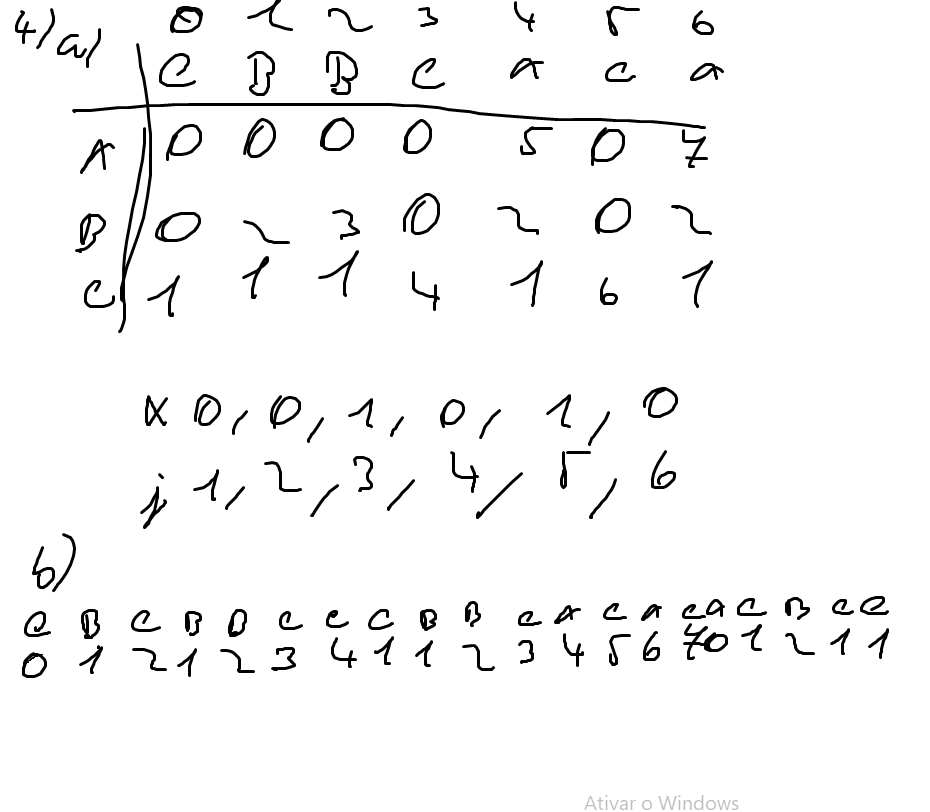 4) a) 0 1 2 3 4 5 6
C B B C A C A
A 0 0 0 0 5 0 7
B 0 2 3 0 2 0 2
C 1 1 1 4 1 6 1
X 0, 0, 1, 0, 1, 0
j 1, 2, 3, 4, 5, 6
b)
C B C B B C C C B B C A C A C A C B C C
0 1 2 1 2 3 4 1 1 2 3 4 5 6 7 0 1 2 1 1
Ativar o Windows